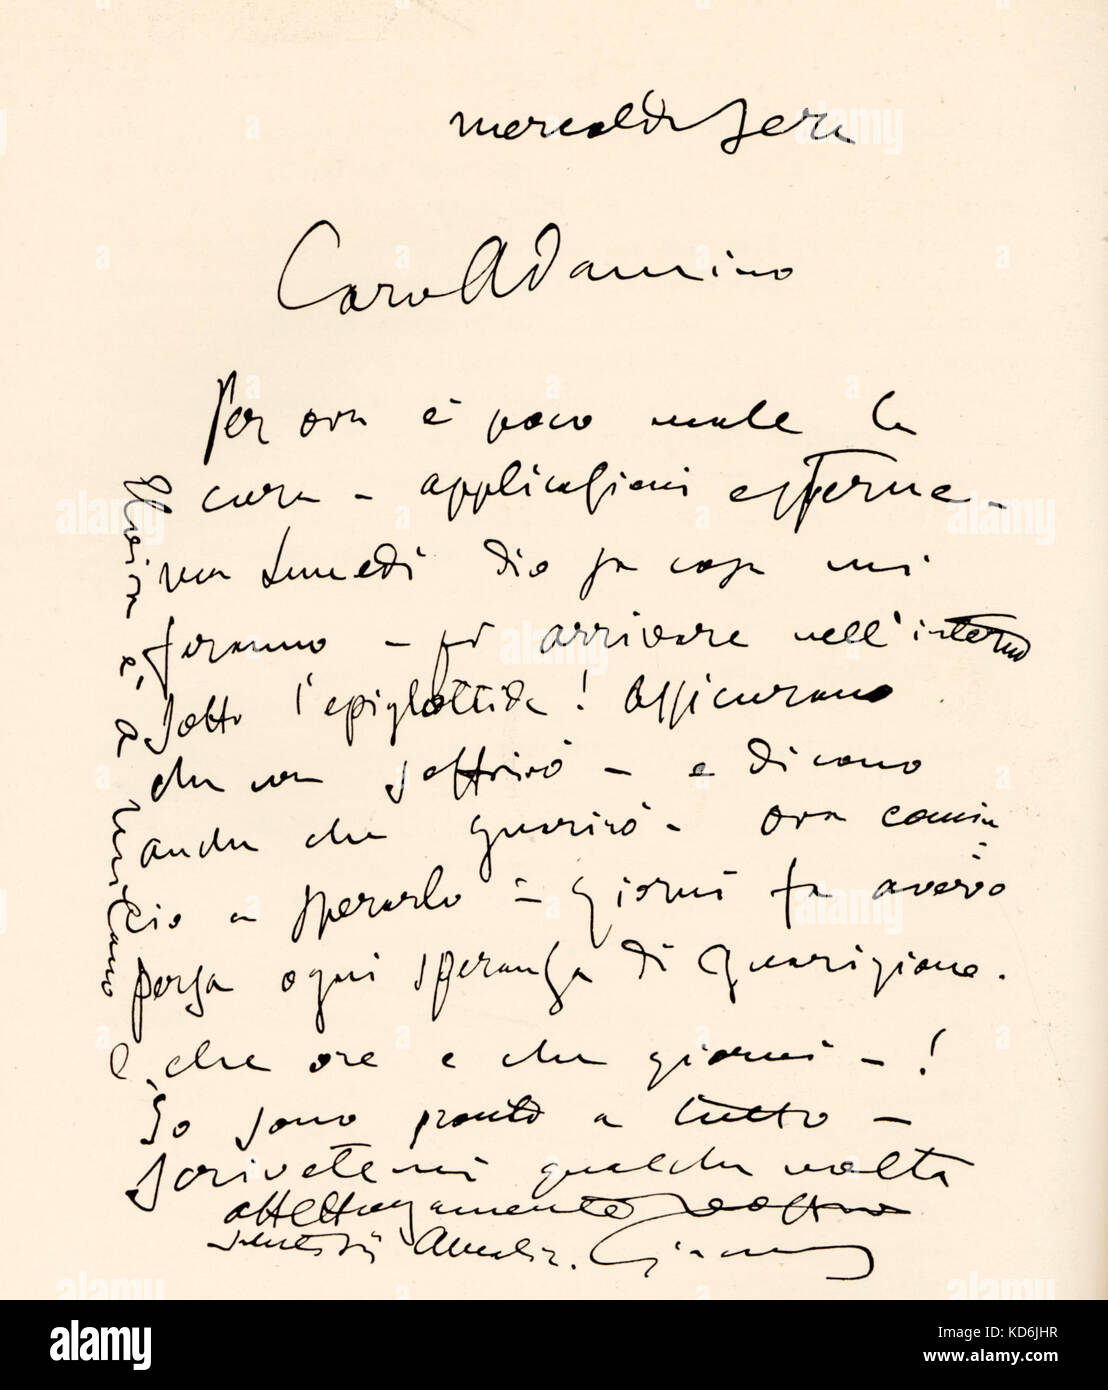 mercoldi sera
Caro Adamino
Per ora è poco male la
cura - applicazioni esterne -
ma Lunedì dio sa cosa mi
faranno - pr arrivare nell'interno
sotto l'epiglottide! Assicurano
che non soffrirò - e dicono
anche che guarirò - ora comin=
cio a sperarlo = giorni fa avevo
persa ogni speranza di guarigione.
E, che ore e che giorni - !
Io sono pronto a tutto -
Scrivetemi qualche volta
affettuosamente vostro
Amalia. Giacomo
è a
alamy
a
alamy
Image ID: KD6JHR
www.alamy.com